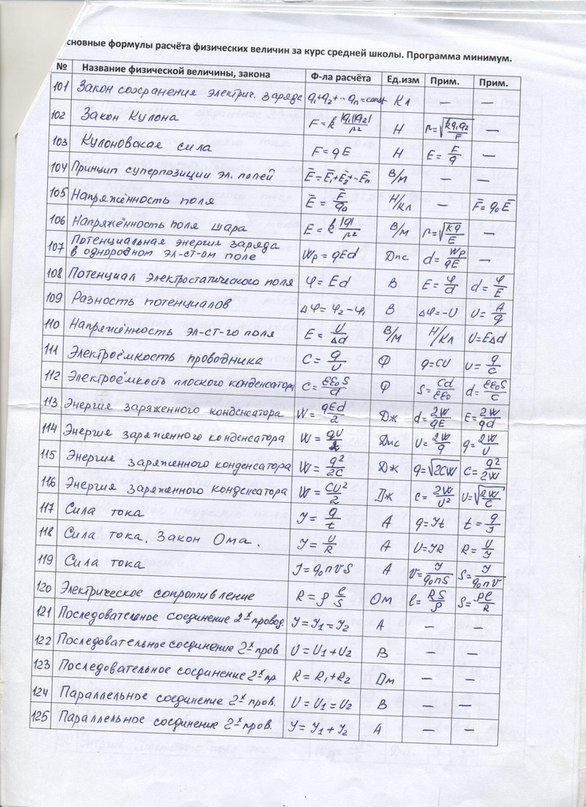 сновные формулы расчёта физических величин за курс средней школы. Программа минимум.
№ Название физической величины, закона Ф-ла расчёта Ед.изм Прим. Прим.
101 Закон сохранения электрич. заряда q₁+q₂+-qₙ=const Кл — —
102 Закон Кулона F=k|q₁||q₂|/r² Н r=√(kq₁q₂/F) —
103 Кулоновская сила F=qE Н E=F/q —
104 Принцип суперпозиции эл. полей E̅=E̅₁+E̅₂+-E̅ₙ В/м — —
105 Напряжённость поля E̅=F̅/q₀ Н/кл — F̅=q₀E̅
106 Напряжённость поля шара E=k|q|/r² В/м r=√(kq/E) —
107 Потенциальная энергия заряда
в однородном эл-ст-ом поле Wp=qEd Дж d=Wp/qE —
108 Потенциал электростатического поля φ=Ed В E=φ/d d=φ/E
109 Разность потенциалов Δφ=φ₂-φ₁ В Δφ=-U U=A/q
110 Напряжённость эл-ст-го поля E=U/Δd В/м Н/Кл U=EΔd
111 Электроёмкость проводника C=q/U Ф q=CU U=q/C
112 Электроёмкость плоского конденсатора C=εε₀S/d Ф S=Cd/εε₀ d=εε₀S/C
113 Энергия заряженного конденсатора W=qEd/2 Дж d=2W/qE E=2W/qd
114 Энергия заряженного конденсатора W=qU/2 Дж U=2W/q q=2W/U
115 Энергия заряженного конденсатора W=q²/2C Дж q=√2CW C=q²/2W
116 Энергия заряженного конденсатора W=CU²/2 Дж C=2W/U² U=√(2W/C)
117 Сила тока I=q/t А q=It t=q/I
118 Сила тока. Закон Ома. I=U/R А U=IR R=U/I
119 Сила тока I=q₀nVS А V=I/q₀nS S=I/q₀nV
120 Электрическое сопротивление R=ρℓ/S Ом ℓ=RS/ρ S=ρℓ/R
121 Последовательное соединение 2ˣ провод. I=I₁=I₂ А — —
122 Последовательное соединение 2ˣ пров U=U₁+U₂ В — —
123 Последовательное соединение 2ˣ пр R=R₁+R₂ Ом — —
124 Параллельное соединение 2ˣ пров. U=U₁=U₂ В — —
125 Параллельное соединение 2ˣ пров. I=I₁+I₂ А — —